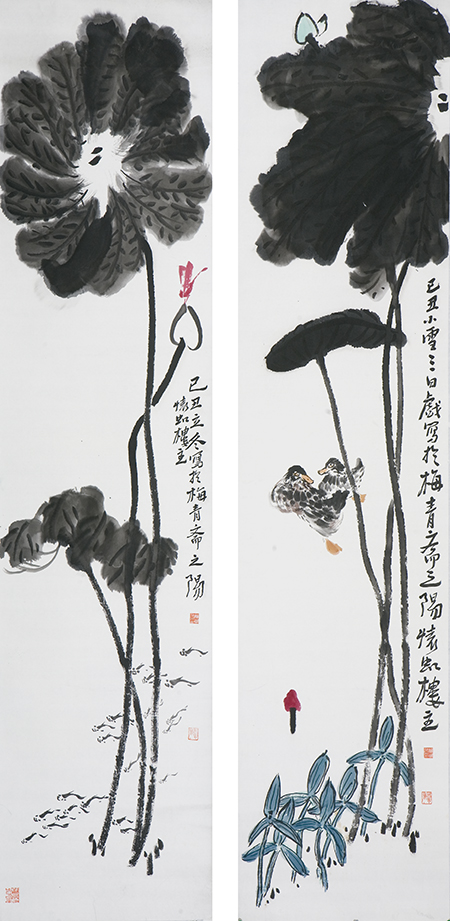 己丑小雪三日戲寫於梅青斋之陽懷虹樓主
己丑立冬寫於梅青斋之陽
懷虹樓主